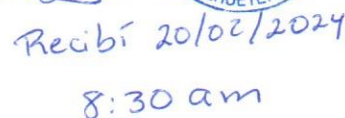 Recibí 20/02/2024
8:30 am